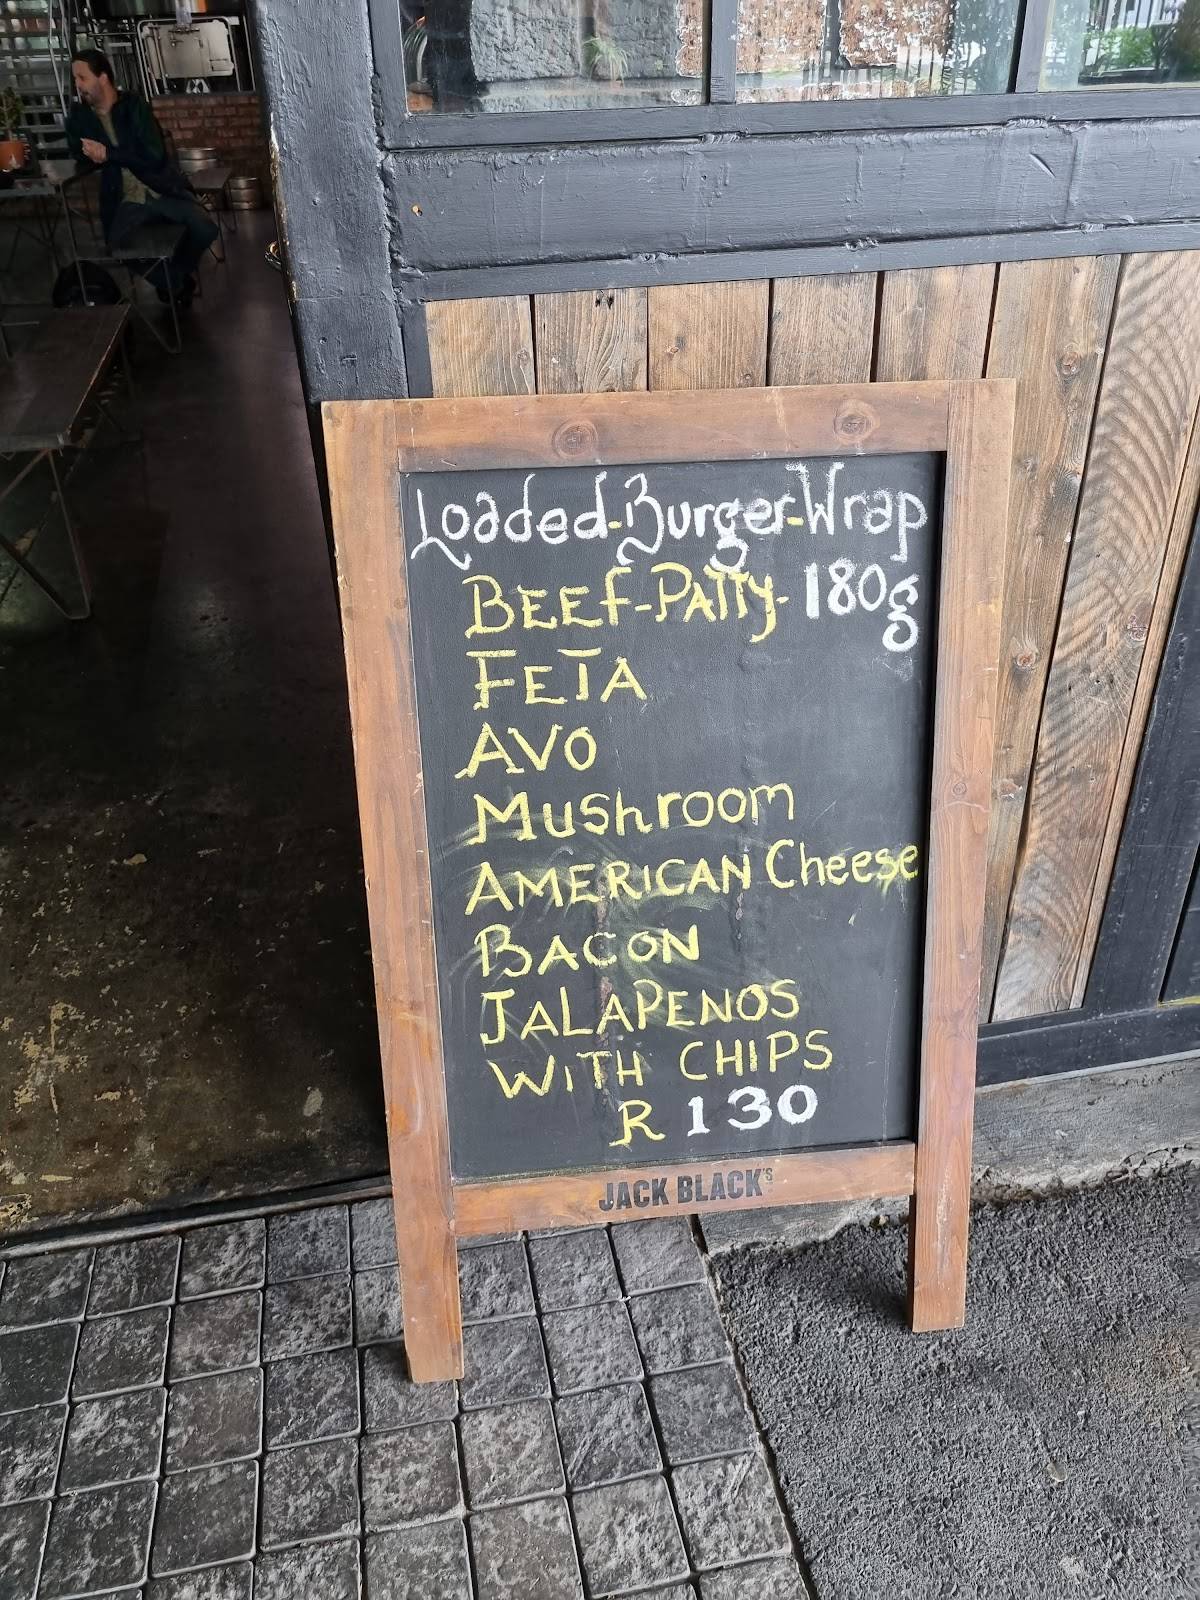 Loaded-Burger-Wrap
BEEf-PATTy-180g
FETA
AVO
Mushroom
AMERICAN Cheese
BACON
JALAPENOS
WITH CHIPS
R 130
JACK BLACK'S